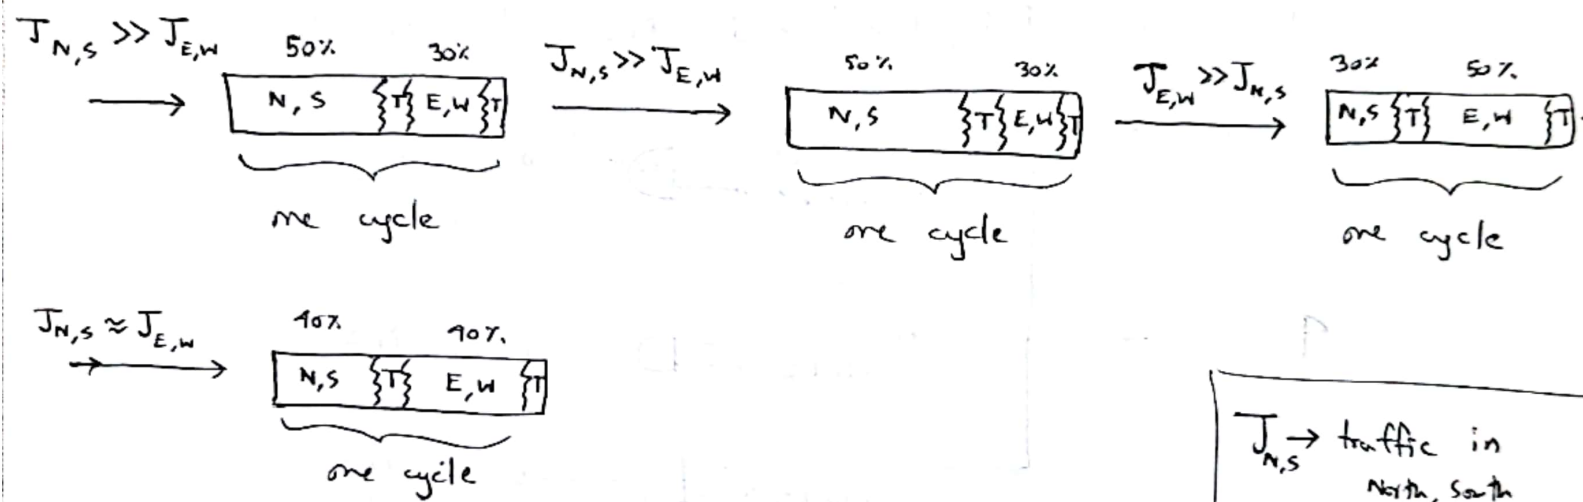 J_{N,S} >> J_{E,W}
50% 30%
N,S T E,W T
one cycle
J_{N,S} >> J_{E,W}
50% 30%
N,S T E,W T
one cycle
J_{E,W} >> J_{N,S}
30% 50%
N,S T E,W T
one cycle
J_{N,S} ≈ J_{E,W}
40% 40%
N,S T E,W T
one cycle
J_{N,S} → traffic in
North, South